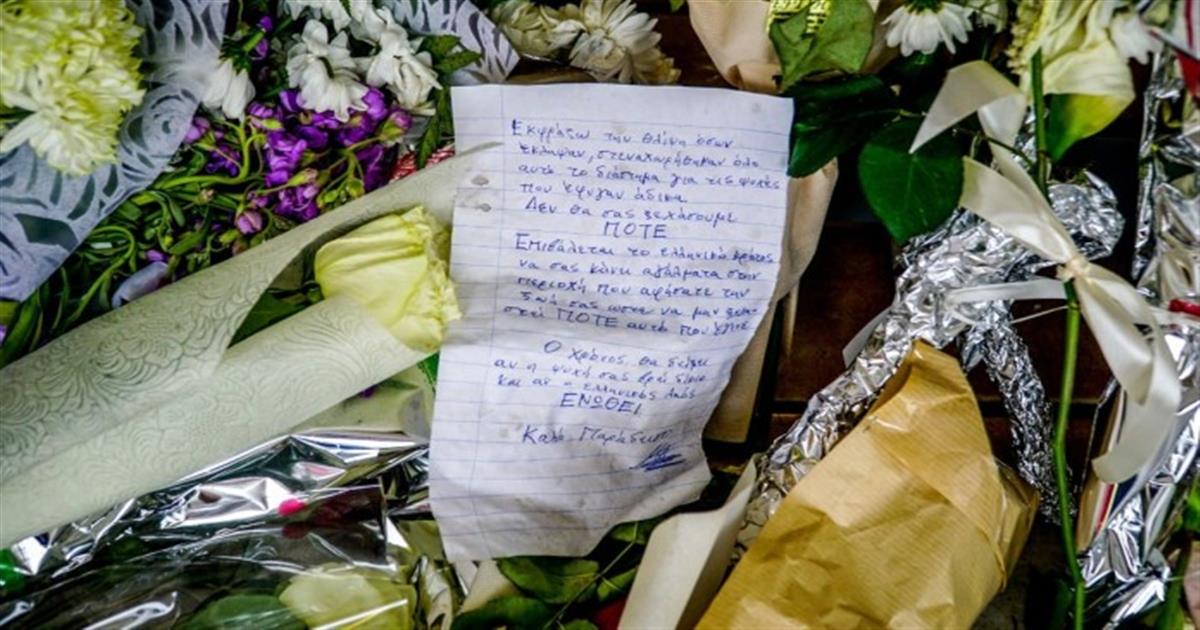 Εκφράζω την θλίψη όσων
έκλαψαν, στεναχωρήθηκαν όλο
αυτό το διάστημα για τις ψυχές
που έφυγαν άδικα
Δεν θα σας ξεχάσουμε
ΠΟΤΕ
Επιβάλεται το ελληνικό κράτος
να σας κάνει αγάλματα στην
περιοχή που αφήσατε την
ζωή σας ώστε να μην ξεχα-
στεί ΠΟΤΕ αυτό που έγινε
Ο χρόνος θα δείξει
αν η ψυχή σας βρεί δίκιο
και αν ο ελληνικός λαός
ΕΝΩΘΕΙ
Καλό Παράδεισο